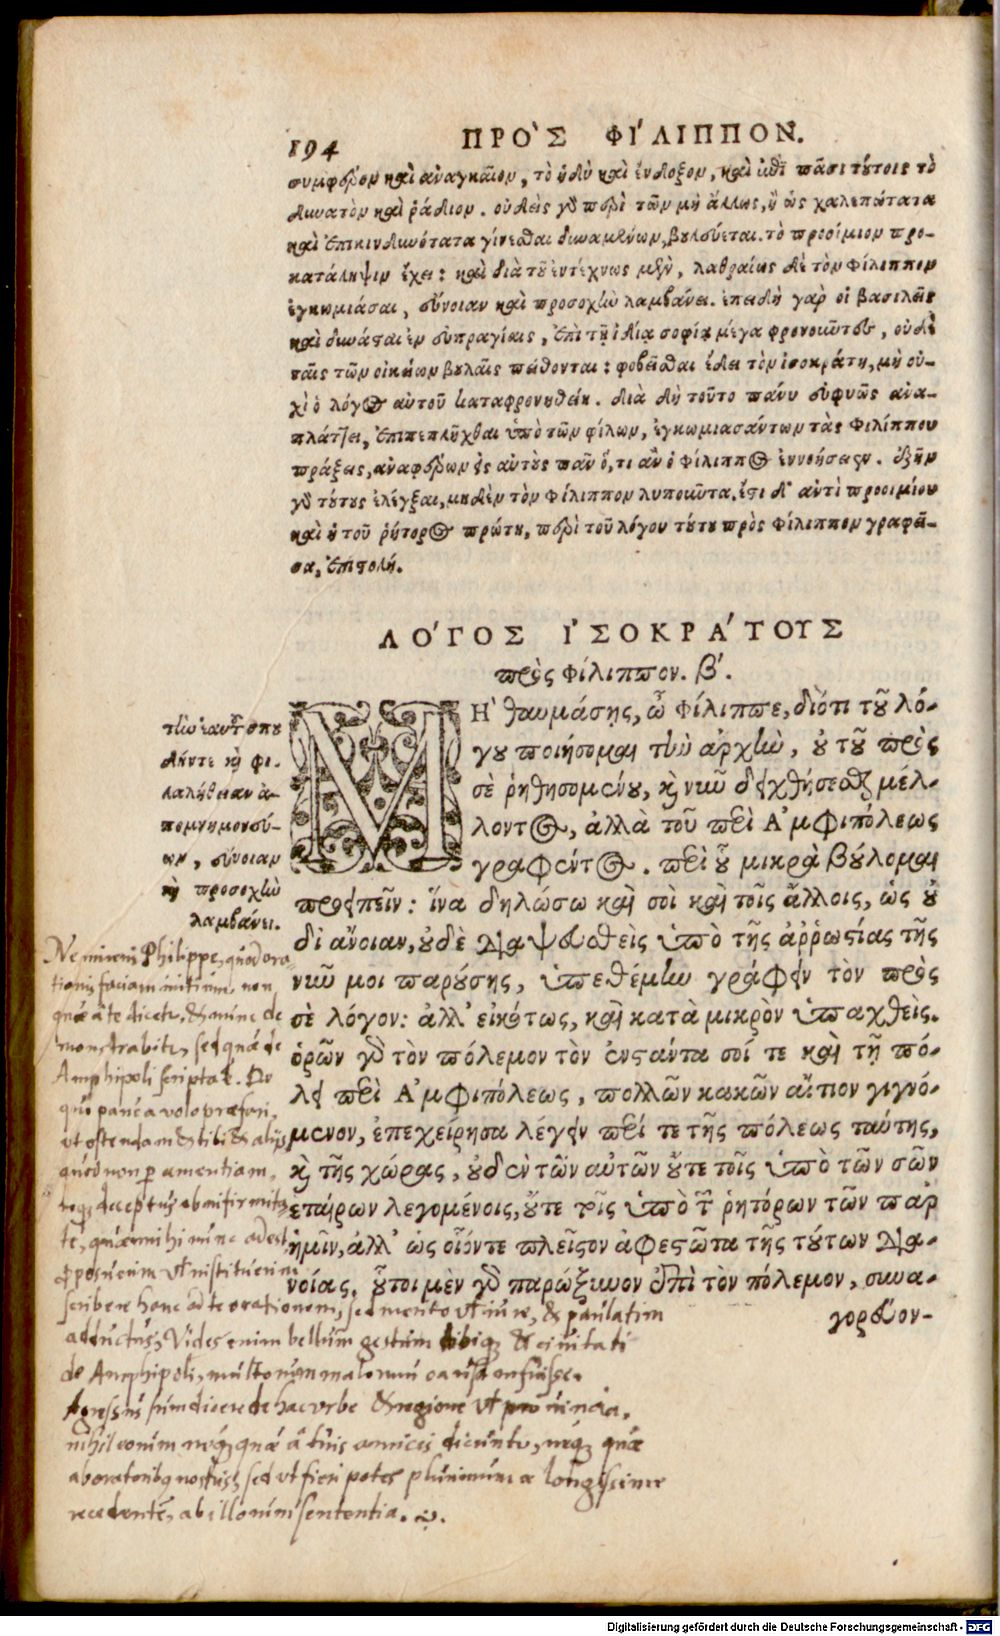 194 ΠΡΟ'Σ ΦΙ'ΛΙΠΠΟΝ.
συμφέρον καὶ ἀναγκαῖον, τὸ ἡδὺ καὶ ἔνδοξον, καὶ ἐπὶ πᾶσι τούτοις τὸ
δυνατὸν καὶ ῥάδιον. οὐδεὶς γὰρ περὶ τῶν μὴ ἄλλως, ἢ ὡς χαλεπώτατα
καὶ ἐπικινδυνότατα γίνεσθαι δυναμένων, βουλεύεται. τὸ προοίμιον προ-
κατάληψιν ἔχει: καὶ διὰ τοῦ ἐντέχνως μὲν, λαθραίως δὲ τὸν Φίλιππον
ἐγκωμιάσαι, εὔνοιαν καὶ προσοχὴν λαμβάνει. ἐπειδὴ γὰρ οἱ βασιλεῖς
καὶ δυνάσται ἐν εὐπραγίαις, ἐπὶ τῇ ἰδίᾳ σοφίᾳ μέγα φρονοῦντες, οὐδὲ
ταῖς τῶν οἰκείων βουλαῖς πείθονται: φοβεῖσθαι ἔδει τὸν ἰσοκράτη, μὴ οὐ-
χὶ ὁ λόγος αὐτοῦ καταφρονηθείη. διὰ δὴ τοῦτο πάνυ εὐφυῶς ἀνα-
πλάττει, ἐπιπεπλῆχθαι ὑπὸ τῶν φίλων, ἐγκωμιασάντων τὰς Φιλίππου
πράξεις, ἀναφέρων εἰς αὐτοὺς πᾶν ὅ, τι ἂν ὁ Φίλιππος ἐννοήσειεν. ἐξῆν
γὰρ τούτους ἐλέγξαι, μηδὲν τὸν Φίλιππον λυποῦντα. ἔστι δ' ἀντὶ προοιμίου
καὶ ἡ τοῦ ῥήτορος πρώτη, περὶ τοῦ λόγου τούτου πρὸς Φίλιππον γραφεῖ-
σα, ἐπιστολή.
ΛΟ'ΓΟΣ Ι'ΣΟΚΡΑ'ΤΟΥΣ
πρὸς Φίλιππον. β'.
ΜΗ' θαυμάσῃς, ὦ Φίλιππε, διότι τοῦ λό-
γου ποιήσομαι τὴν ἀρχὴν, οὐ τοῦ πρὸς
σὲ ῥηθησομένου, καὶ νῦν δειχθήσεσθαι μέλ-
λοντος, ἀλλὰ τοῦ περὶ Ἀμφιπόλεως
γραφέντος. περὶ οὗ μικρὰ βούλομαι
προειπεῖν: ἵνα δηλώσω καὶ σοὶ καὶ τοῖς ἄλλοις, ὡς οὐ
δι' ἄνοιαν, οὐδὲ διαψευσθεὶς ὑπὸ τῆς ἀῤῥωστίας τῆς
νῦν μοι παρούσης, ὑπεθέμην γράφειν τὸν πρὸς
σὲ λόγον: ἀλλ' εἰκότως, καὶ κατὰ μικρὸν ὑπαχθείς.
ὁρῶν γὰρ τὸν πόλεμον τὸν ἐνστάντα σοί τε καὶ τῇ πό-
λει περὶ Ἀμφιπόλεως, πολλῶν κακῶν αἴτιον γιγνό-
μενον, ἐπεχείρησα λέγειν περί τε τῆς πόλεως ταύτης,
καὶ τῆς χώρας, οὐδὲν τῶν αὐτῶν οὔτε τοῖς ὑπὸ τῶν σῶν
ἑταίρων λεγομένοις, οὔτε τοῖς ὑπὸ τῶν ῥητόρων τῶν παρ'
ἡμῖν, ἀλλ' ὡς οἷόντε πλεῖστον ἀφεστῶτα τῆς τούτων δια-
νοίας. οὗτοι μὲν γὰρ παρώξυνον ἐπὶ τὸν πόλεμον, συνα-
γορεύον-
τὴν ἑαυτοῦ σπου
δήν τε καὶ φι-
λαλήθειαν ἀ-
πομνημονεύ-
ων, εὔνοιαν
καὶ προσοχὴν
λαμβάνει.
Ne mireris Philippe, quòd ora
tionis faciam initium, non
quæ a te dicetur, & nunc de
monstrabitur, sed quæ de
Amphipoli scripta est. De
quo pauca volo præfari,
ut ostendam & tibi & alijs
quòd non per amentiam,
neque deceptus ab infirmita
te, quæ mihi nunc adest,
proposuerim ut instituerim
scribere hanc ad te orationem, sed merito ut iure, & paulatim
adductus, Vides enim bellum gestum tibique & ciuitati
de Amphipoli, multorum malorum causam fuisse.
Agressus sum dicere de hac vrbe & regione ut prouincia,
nihil eorum neque quæ à tuis amicis dicuntur, neque quæ
ab oratoribus nostris, sed ut fieri potest plurimum ac longissime
recedente, ab illorum sententia.
Digitalisierung gefördert durch die Deutsche Forschungsgemeinschaft - DFG